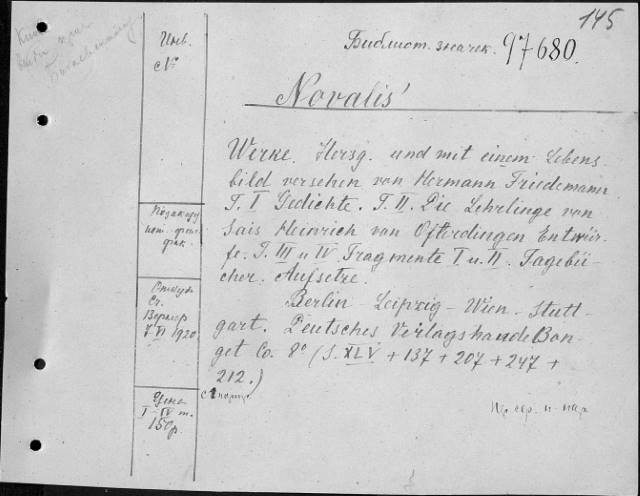 145
Библиот. значек. 97680.
Инв.
№
Novalis'
Werke. Hersg. und mit einem Lebens-
bild versehen von Hermann Friedemann
T. I Gedichte. T. II. Die Lehrlinge von
Sais Heinrich von Ofterdingen Entwür-
fe. T. III u IV Fragmente I u. II. Tagebü-
cher. Aufsetze.
Berlin – Leipzig – Wien – Stutt-
gart. Deutsches Verlagshande Bon-
get Co. 8° (S. XLV + 137 + 207 + 247 +
212.)
По
фак.
Откуда
Ст.
7 VI 1920
Цена
I–IV т.
150р.